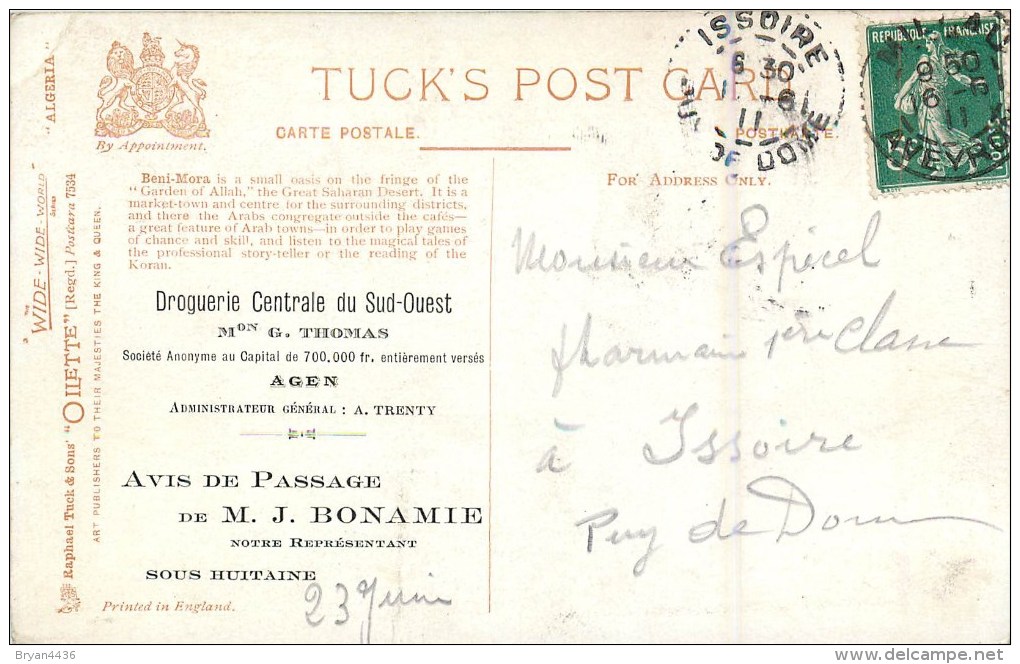 "ALGERIA"
THE
"WIDE-WIDE-WORLD
SERIES
Raphael Tuck & Sons' "OILETTE" [Regd.] Postcard 7534
ART PUBLISHERS TO THEIR MAJESTIES THE KING & QUEEN.
By Appointment.
TUCK'S POST CARD
CARTE POSTALE.
POSTKARTE.
ISSOIRE
6 30
11 -6
11
PUY DE DOME
REPUBLIQUE FRANÇAISE
9 50
16 -6
11
AVEYRON
Beni-Mora is a small oasis on the fringe of the
"Garden of Allah," the Great Saharan Desert. It is a
market-town and centre for the surrounding districts,
and there the Arabs congregate outside the cafés—
a great feature of Arab towns—in order to play games
of chance and skill, and listen to the magical tales of
the professional story-teller or the reading of the
Koran.
Droguerie Centrale du Sud-Ouest
MON G. THOMAS
Société Anonyme au Capital de 700.000 fr. entièrement versés
AGEN
ADMINISTRATEUR GÉNÉRAL : A. TRENTY
AVIS DE PASSAGE
DE M. J. BONAMIE
NOTRE REPRÉSENTANT
SOUS HUITAINE
23 Juin
Printed in England.
FOR ADDRESS ONLY.
Monsieur Espécel
pharmacien 1ère Classe
à Issoire
Puy de Dome
Bryan4436
www.delcampe.net